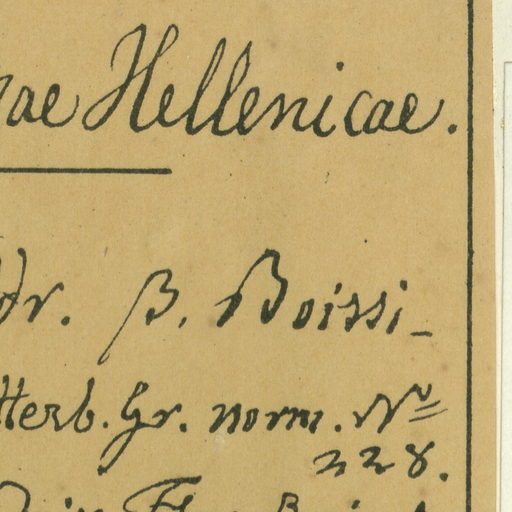 ae Hellenicae.
dr. β. Boissi-
Herb. Gr. norm. No
228.